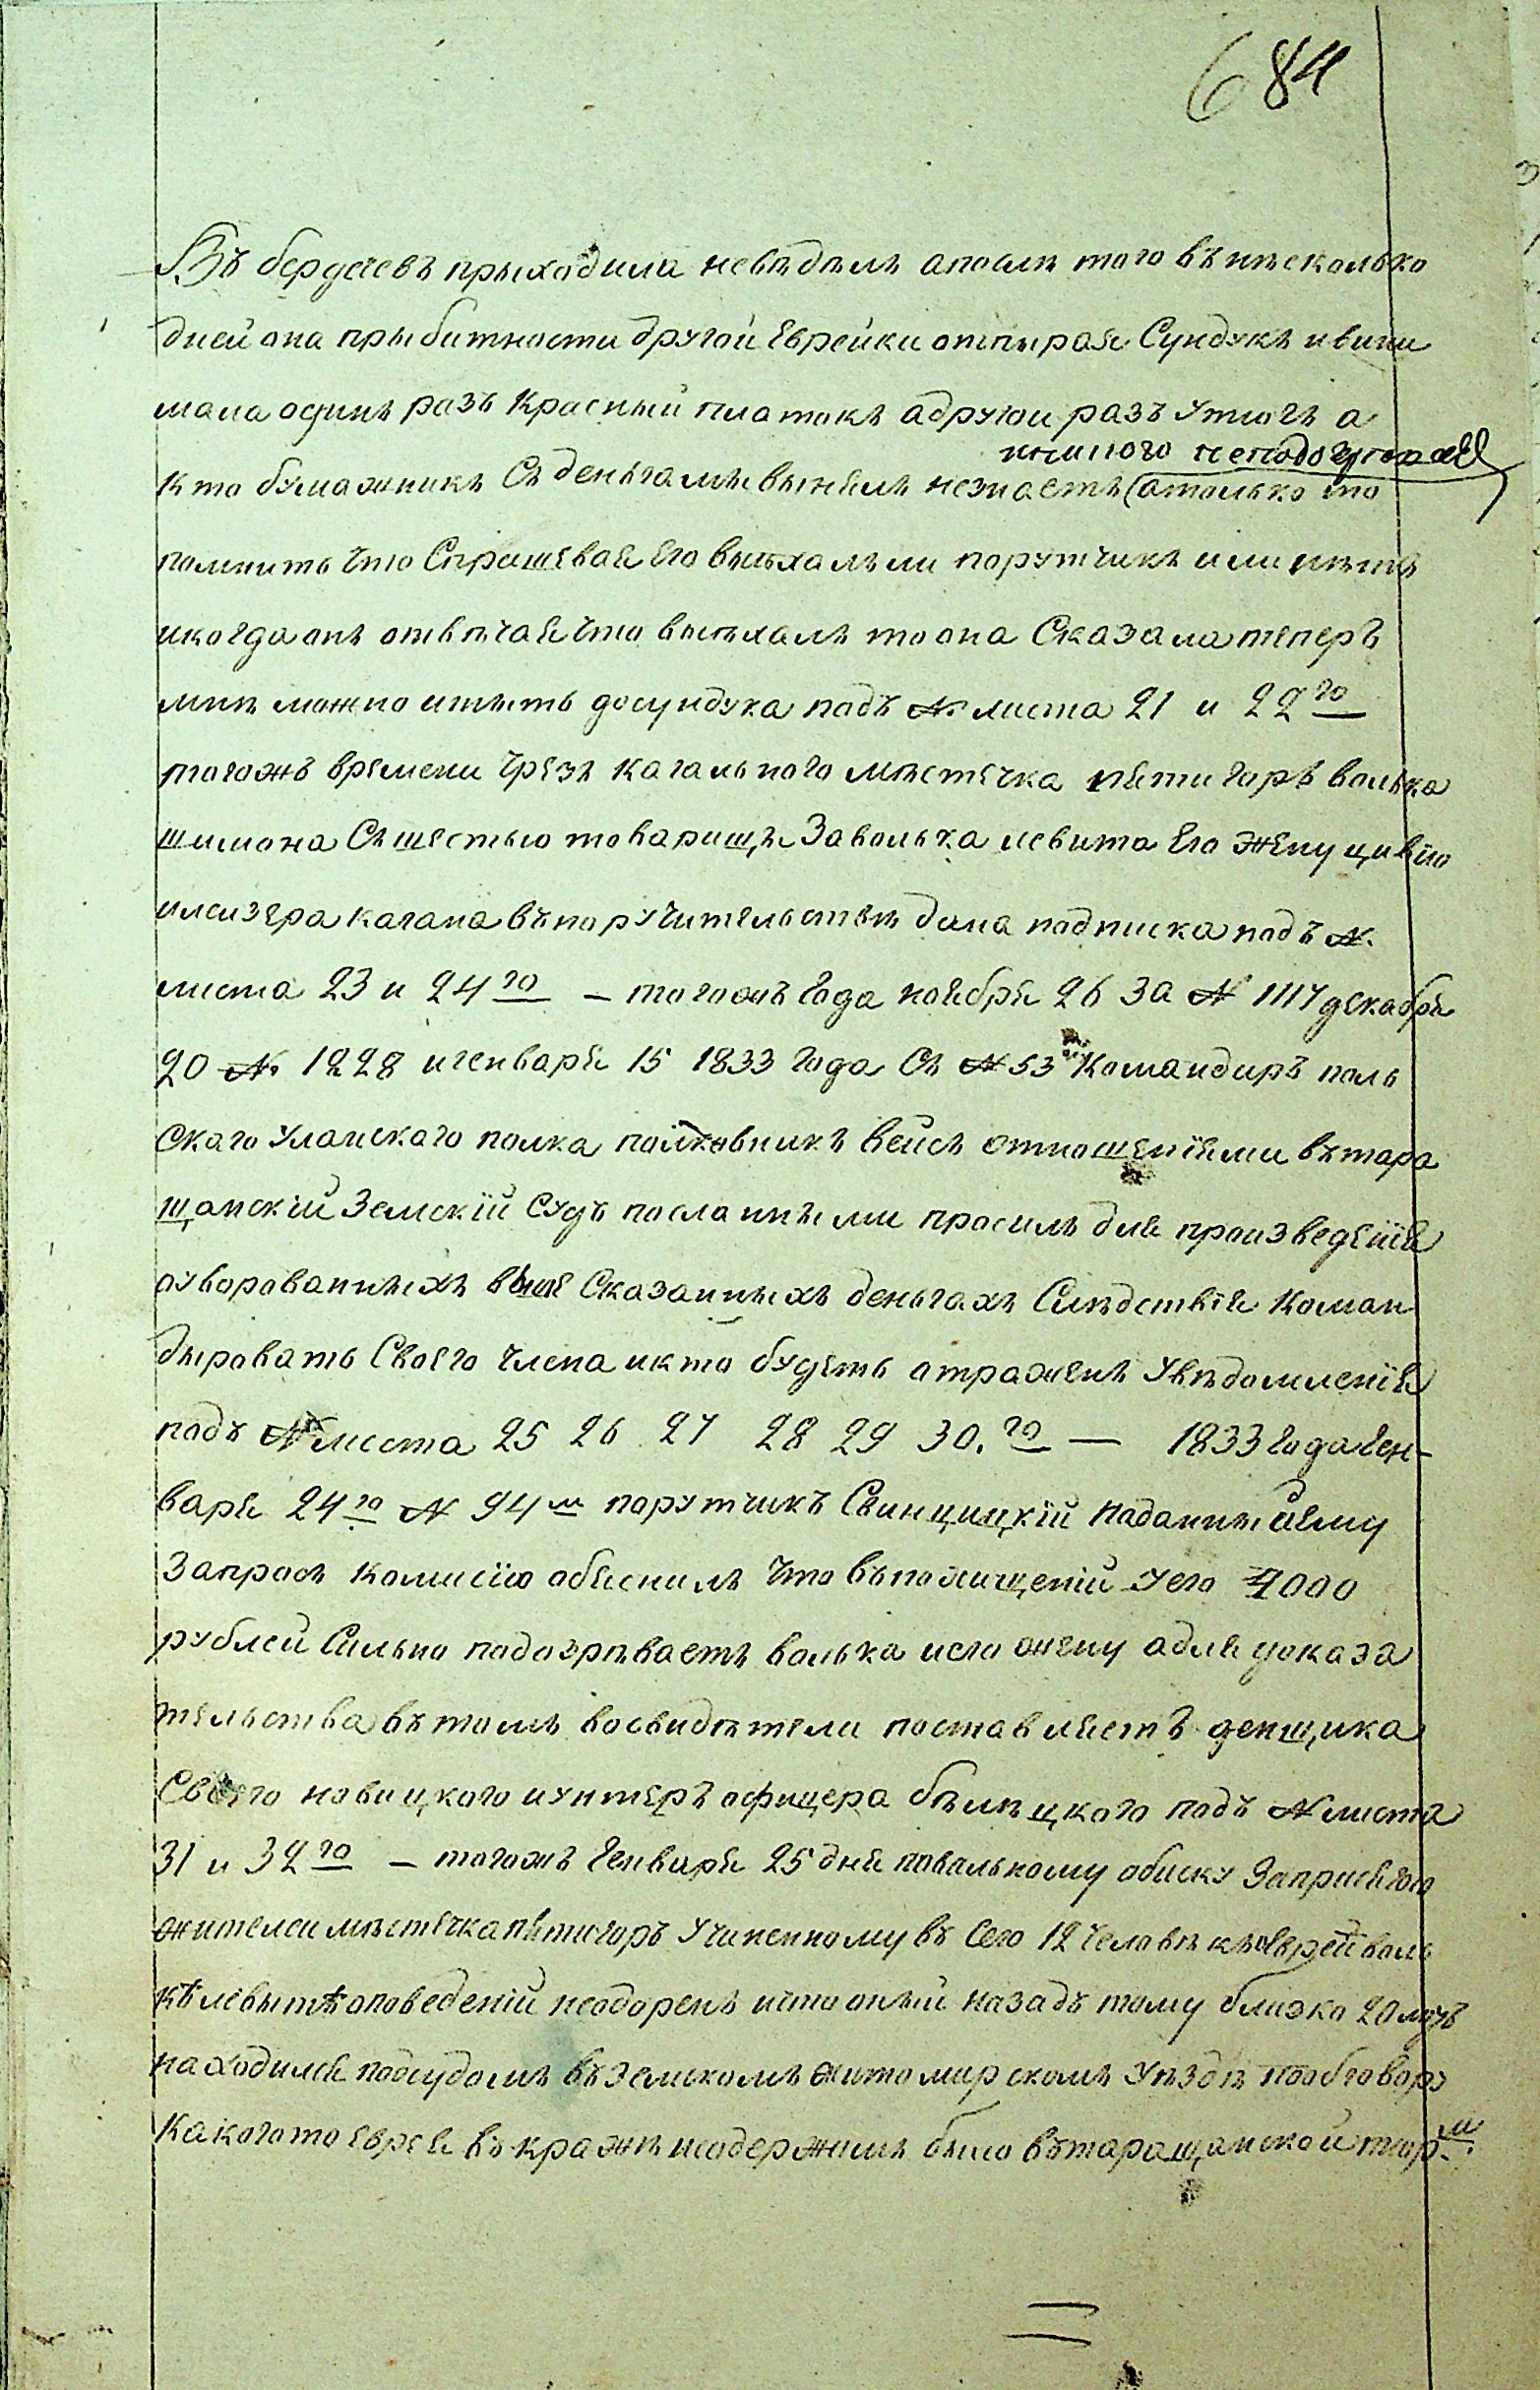 684
Въ бердечевъ прыходила невѣдѣлъ апослѣ того въ нѣсколько
дней она прыбитности другой Еврейки отпырая Сундукъ ивини
мала одинъ разъ Красный платокъ адругои разъ Утюгъ а
нинного неподозрѣваетъ
Кто бумажникъ Съ деньгамы вынялъ незнаетъ (атолько то
помнитъ Что Спрашевая Его выѣхалъли порутчикъ или нѣтъ
икогда онъ отвѣчая Что выѣхалъ тоона Сказала теперъ
мнѣ можно итыть досундука подъ № листа 21 и 22го
тогожъ времени Чрезъ Кагального мѣстечка пятигоръ волька
шимона Съ шестью товарищы Заволька левита Его Жену цивю
илейзера кагана въпоручительствѣ дана подписка подъ №.
листа 23 и 24го – тогожъ Года ноября 26 За № 1117 декабря
20 № 1228 игенваря 15 1833 Года Съ № 53 Командиръ поль
Скаго Уланскаго полка полковникъ Вейсъ отношеніями въ тара
щанскій Земскій Судъ посланными просилъ для произведенія
оуворованныхъ выше Сказанныхъ деньгахъ Слѣдствія Коман
дыровать Своего Члена икто будетъ отраженъ Увѣдомленія
подъ № листа 25 26 27 28 29 30.го — 1833 Года Ген-
варя 24го № 94м порутчикъ Свинцицкій наданные ему
Запросъ Комисію обяснилъ Что въпохищеній Уего 4000
рублей Сильно подозрѣваетъ волька иего жену адля доказа
тельства въ томъ восвидѣтели поставляетъ денщика
Своего новицкого иунтеръ офицера бѣлецкого подъ № листа
31 и 32го – тогожъ Генваря 25 дня повальному обиску Заприсягою
жителей мѣстечка пятигоръ Учиненному въ Сего 12 Человѣкъ Еврей воль
къ левытъ оповеденіи неодоренъ ичто оный назадъ тому близко 20 лѣтъ
находился подсудомъ въ Земскомъ житомирскомъ Уѣздѣ пообговору
Какогото еврея въкражѣ исодержимъ было вътаращанской тюрм